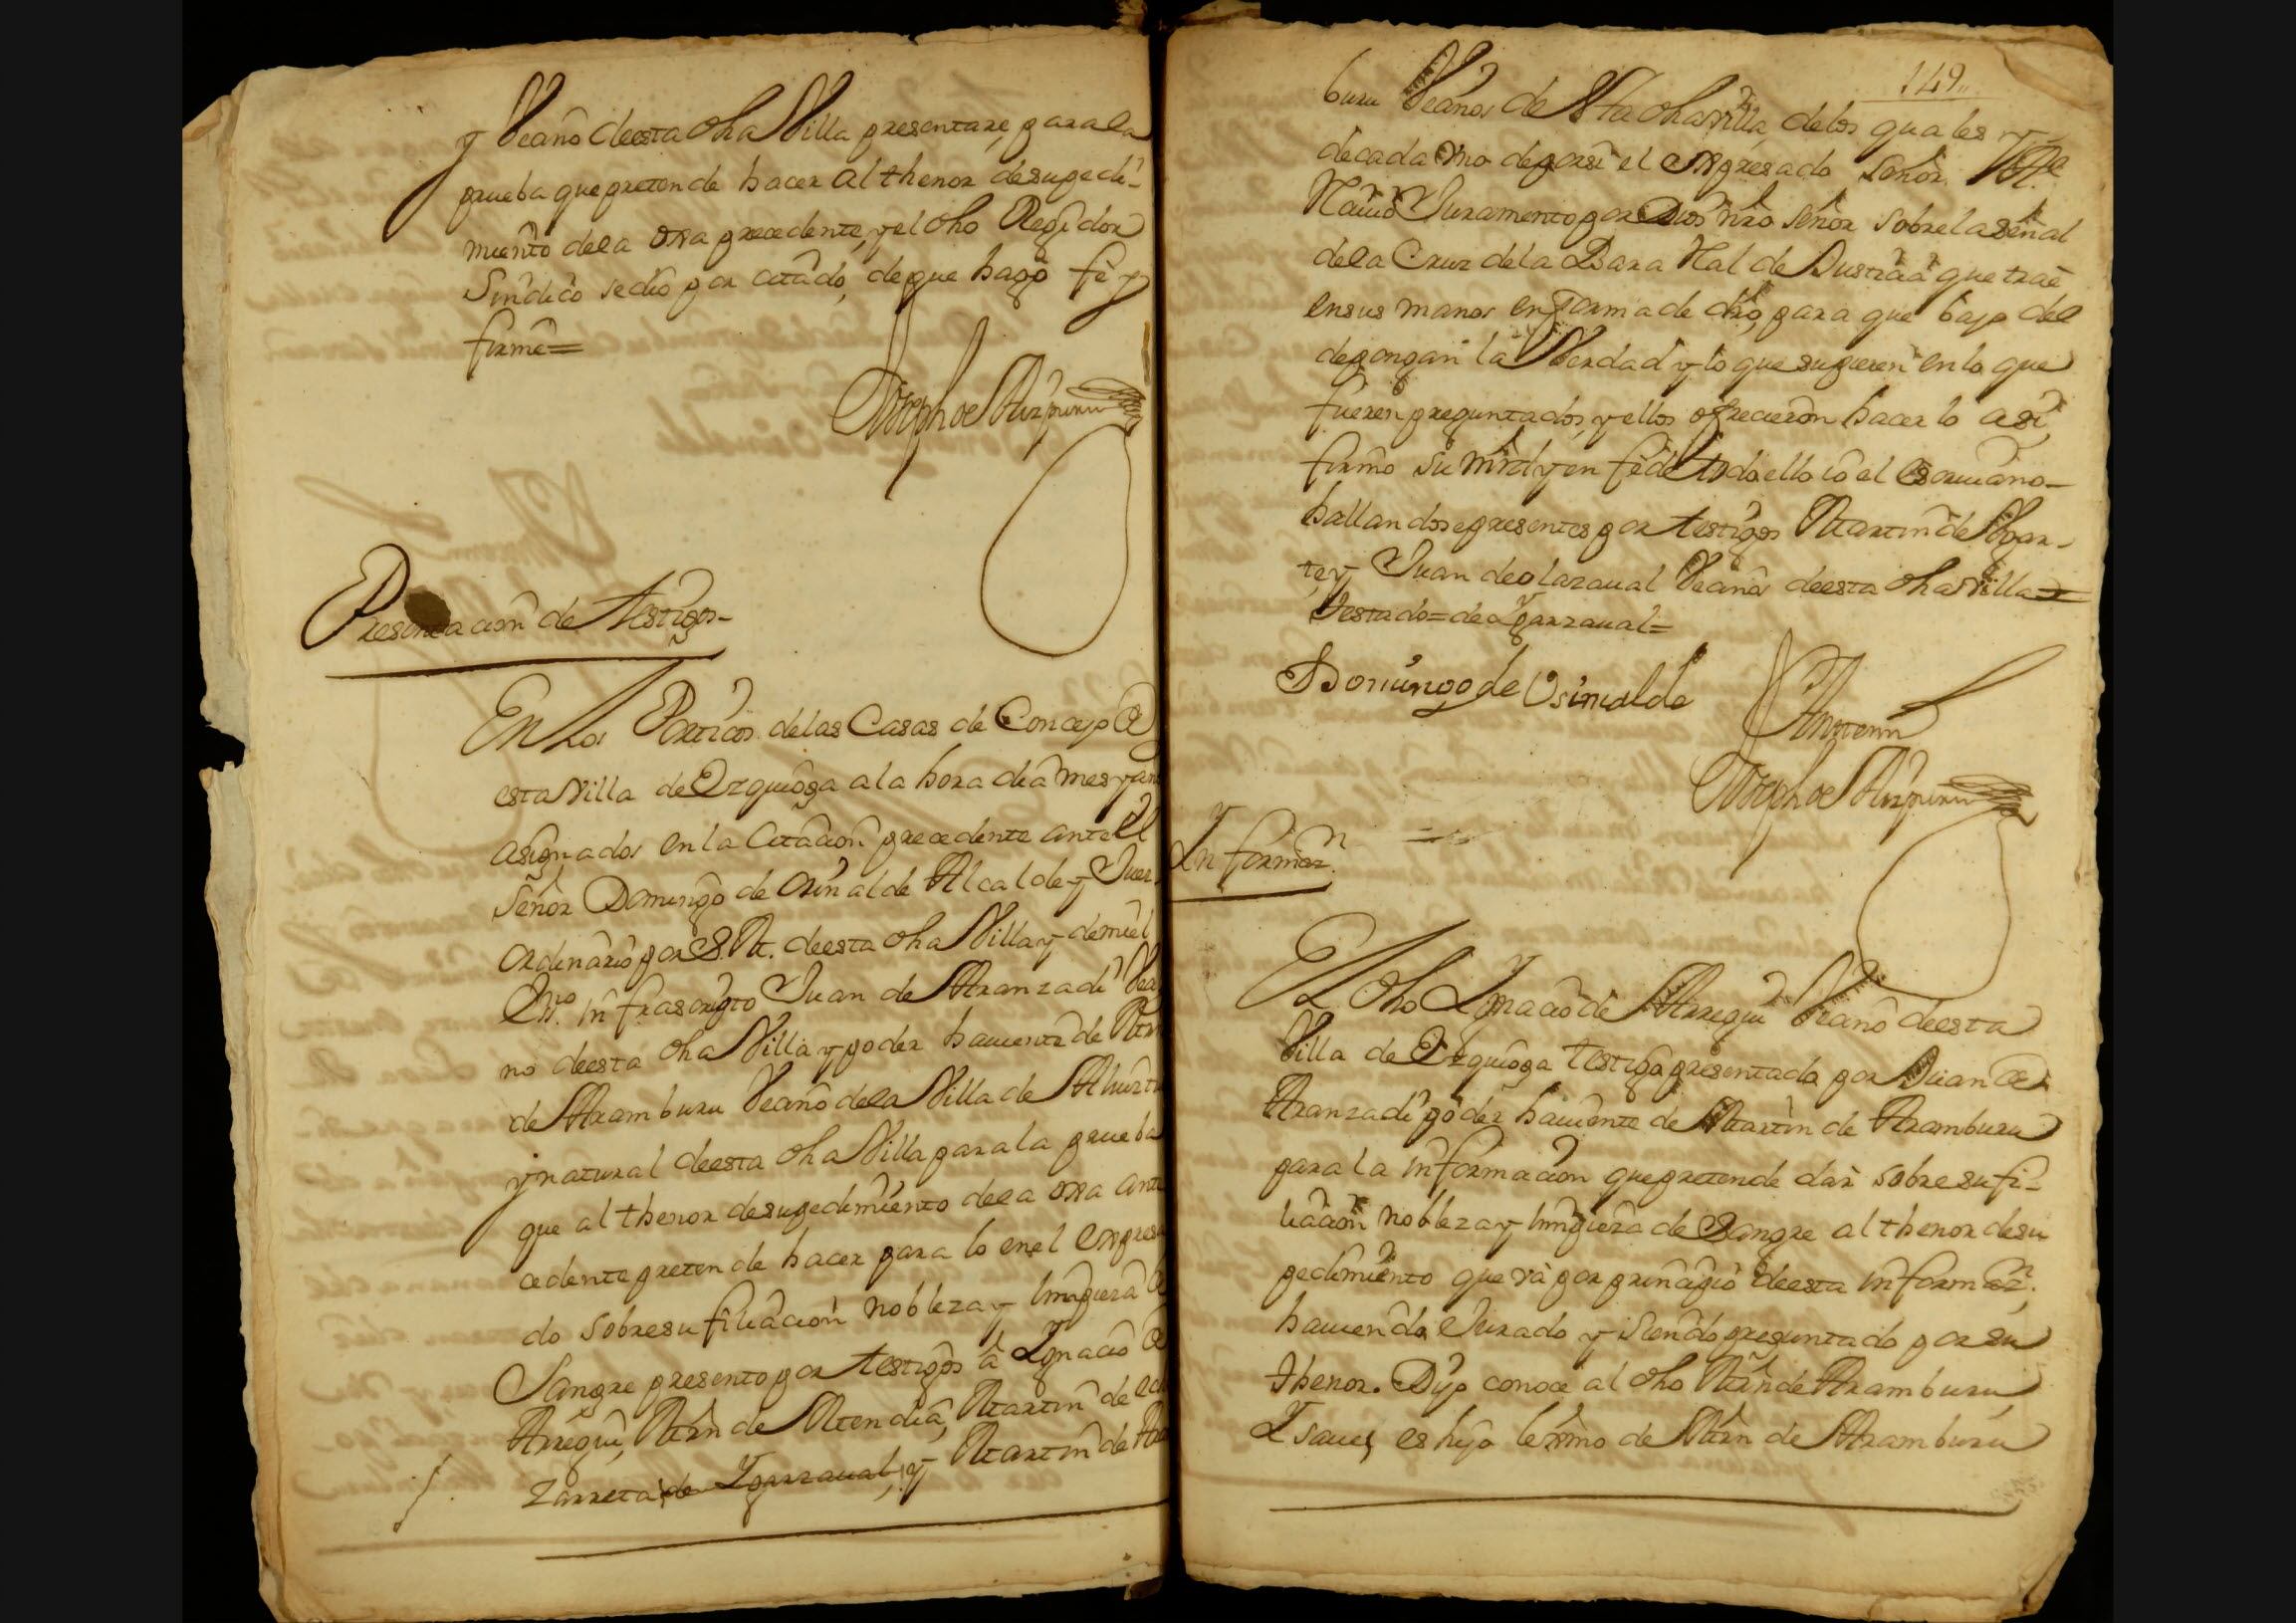 y Vecino deesta dha Villa presentare, para la
prueba que pretende hacer al thenor de supedi-
miento dela otra precedente, y el dho Regidor
Sindico sedio por citado, de que hago fè y
firmè=
Joseph de Aizpuru
Presentacion de testigos-
En Los Porticos delas Casas de Concejo de
esta Villa de Ezquioga a la hora dia mes y an
asignados en la citacion precedente ante el
Señor Domingo de Orinalde Alcalde y Juez
ordinario por S. M. deesta dha Villa y demi el
Eno. infrascripto Juan de Aranzadi Veci
no deesta dha Villa y poder haviente de Mrn
de Aramburu Vecino dela Villa de
y natural deesta dha Villa para la prueba
que al thenor desupedimiento dela otra ante
cedente pretende hacer para lo enel expresa
do sobre su filiacion nobleza y limpieza de
Sangre presento por testigos à Ygnacio de
Arregui, Mrn de Mendia, Martin de
zarreta, de Ygarzaual, y Martin de Ara
149
buru Vecinos de Sta dha Villa, delos quales y
de cada vno de porsi el expresado Señor Alce
Reciuio Juramento por Dios nro Señor sobre la señal
dela Cruz dela Bara Real de Justicia que trae
en sus manos en forma de dro, para que bajo del
depongan la Verdad y lo que supieren en lo que
fueren preguntados, y ellos ofrecieron hacer lo asi,
firmo su mrd y en fè de todo ello io el escriuano-
hallandose presentes por testigos Martin de Vgar-
te, y Juan de olazaual Vecinos deesta dha Villa=
Testado=de Ygarzaual=
Domingo de Usinalde
Antemi
Joseph de Aizpuru
Ynformazn.
El dho Ygnacio de Arregui Vecino deesta
Villa de Ezquioga testigo presentado por Juan de
Aranzadi poder haviente de Martin de Aramburu
para la informacion que pretende dar sobre su fi-
liacion nobleza y limpieza de Sangre al thenor desu
pedimiento que và por principio deesta informazn.
haviendo Jurado y siendo preguntado por su
thenor. Dijo conoce al dho Mrn de Aramburu,
Y saue, es hijo lexmo de Mrn de Aramburu